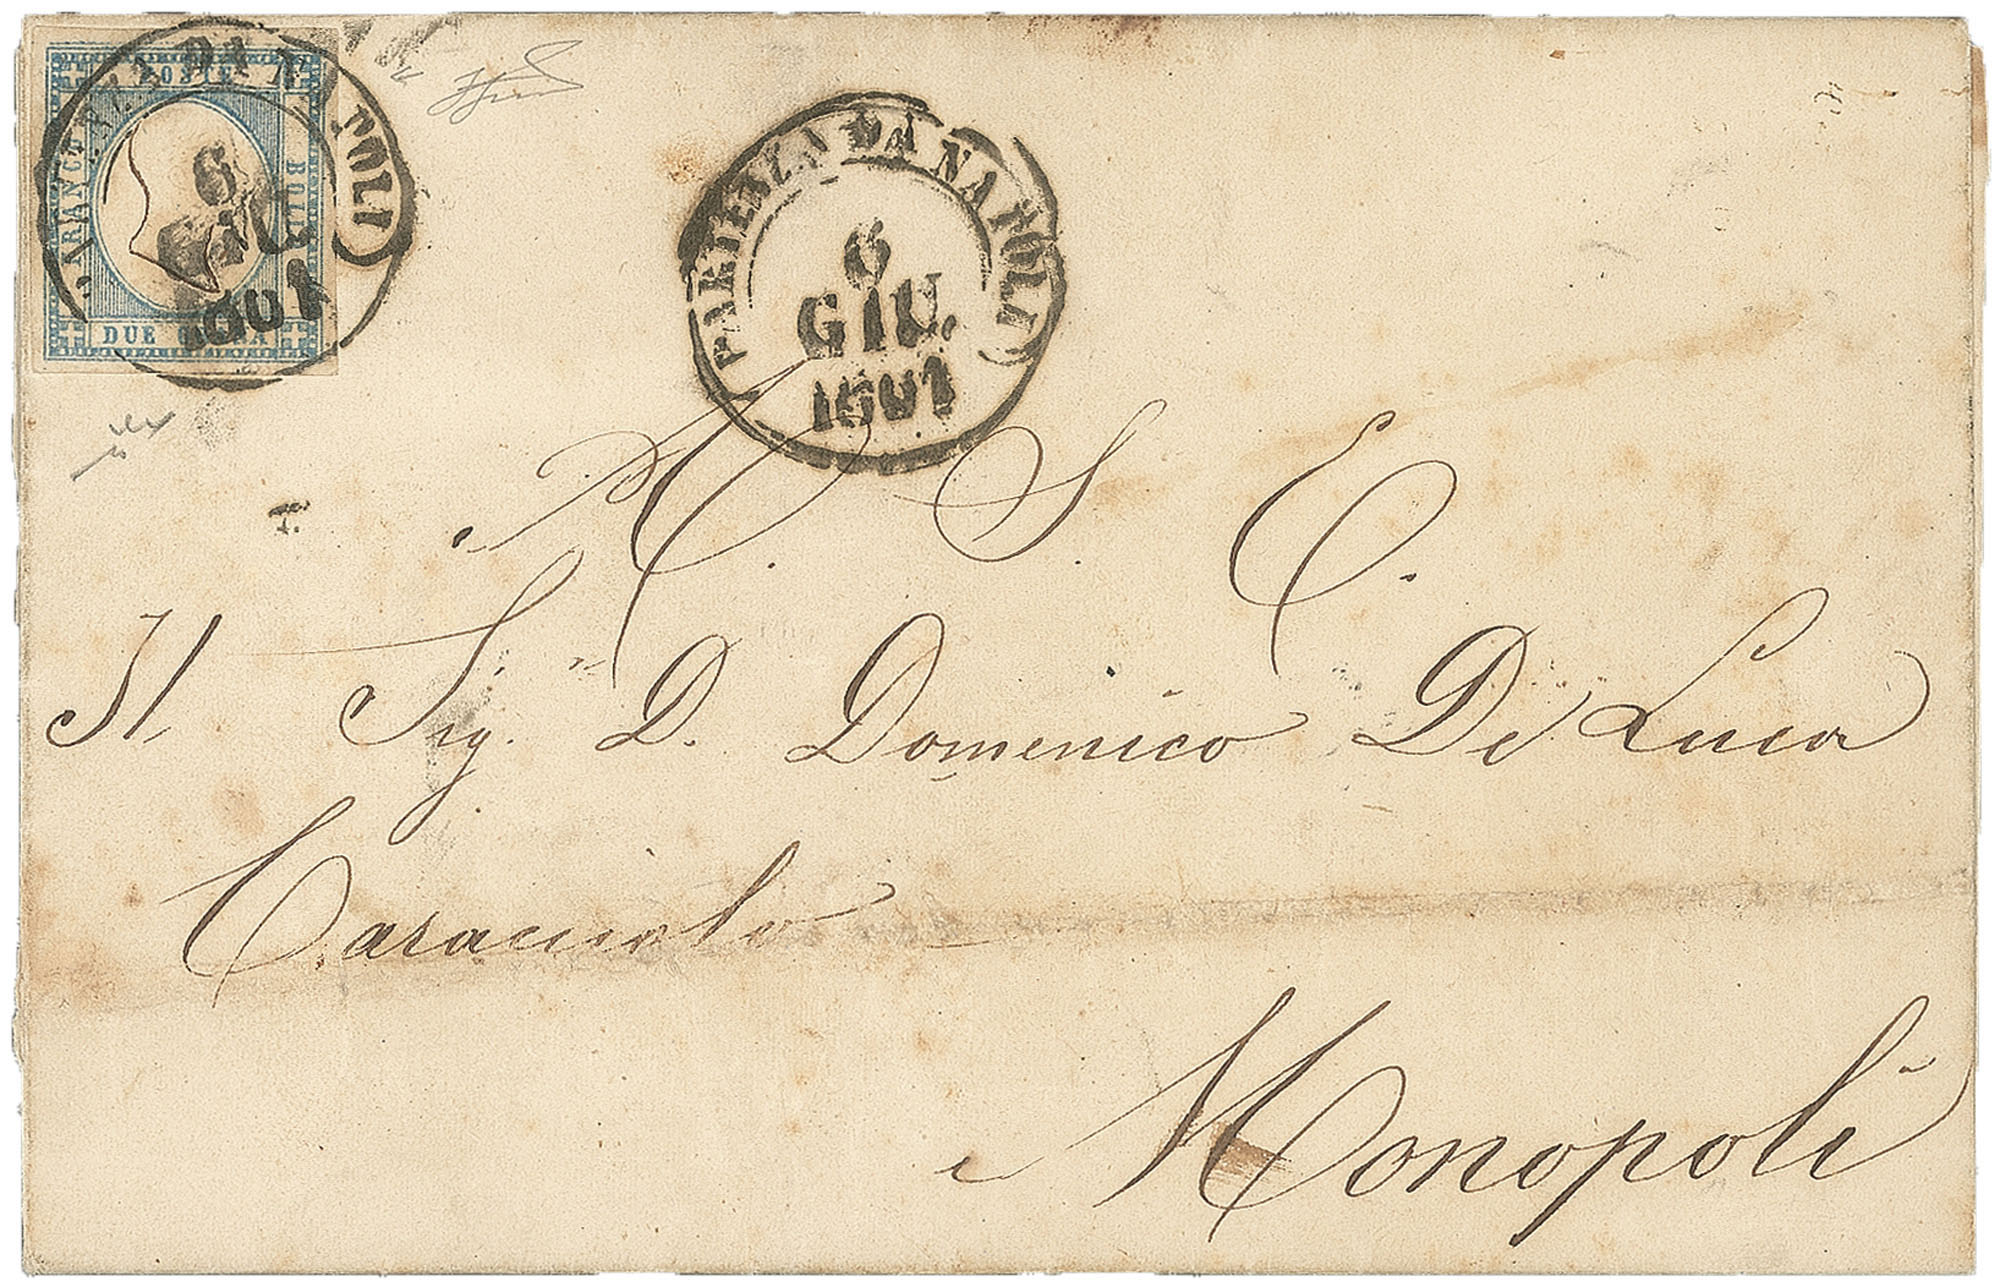 POSTE
FRANCO
BOLLO
DUE GRANA
(PARTENZA DA NAPOLI)
6
GIU.
1861
(PARTENZA DA NAPOLI)
6
GIU.
1861
A. S. E.
Il Sig. D. Domenico De Luca
Caracciolo
Monopoli